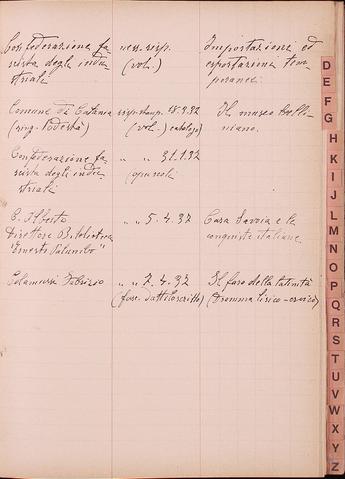 Confederazione fa-
scista degli indu-
striali
ness. risp.
(vol.)
Importazioni ed
esportazioni tem-
poranee.
Comune di Catania
(ring. Podestà)
risp. stamp. 18.1.32
(vol.) catalogo
Il museo belli-
niano.
Confederazione fa-
scista degli indu-
striali
" " 31.1.32
opuscoli
C. Alberto
Direttore Biblioteca
"Ernesto Palumbo"
" " 5.4.32
Casa Savoia e le
conquiste italiane.
Colamussi Fabrizio
" " 7.4.32
(fasc. dattiloscritto)
Il faro della latinità
(dramma lirico-eroico)
D
E
F
G
H
K
I
J
L
M
N
O
P
Q
R
S
T
U
V
W
X
Y
Z